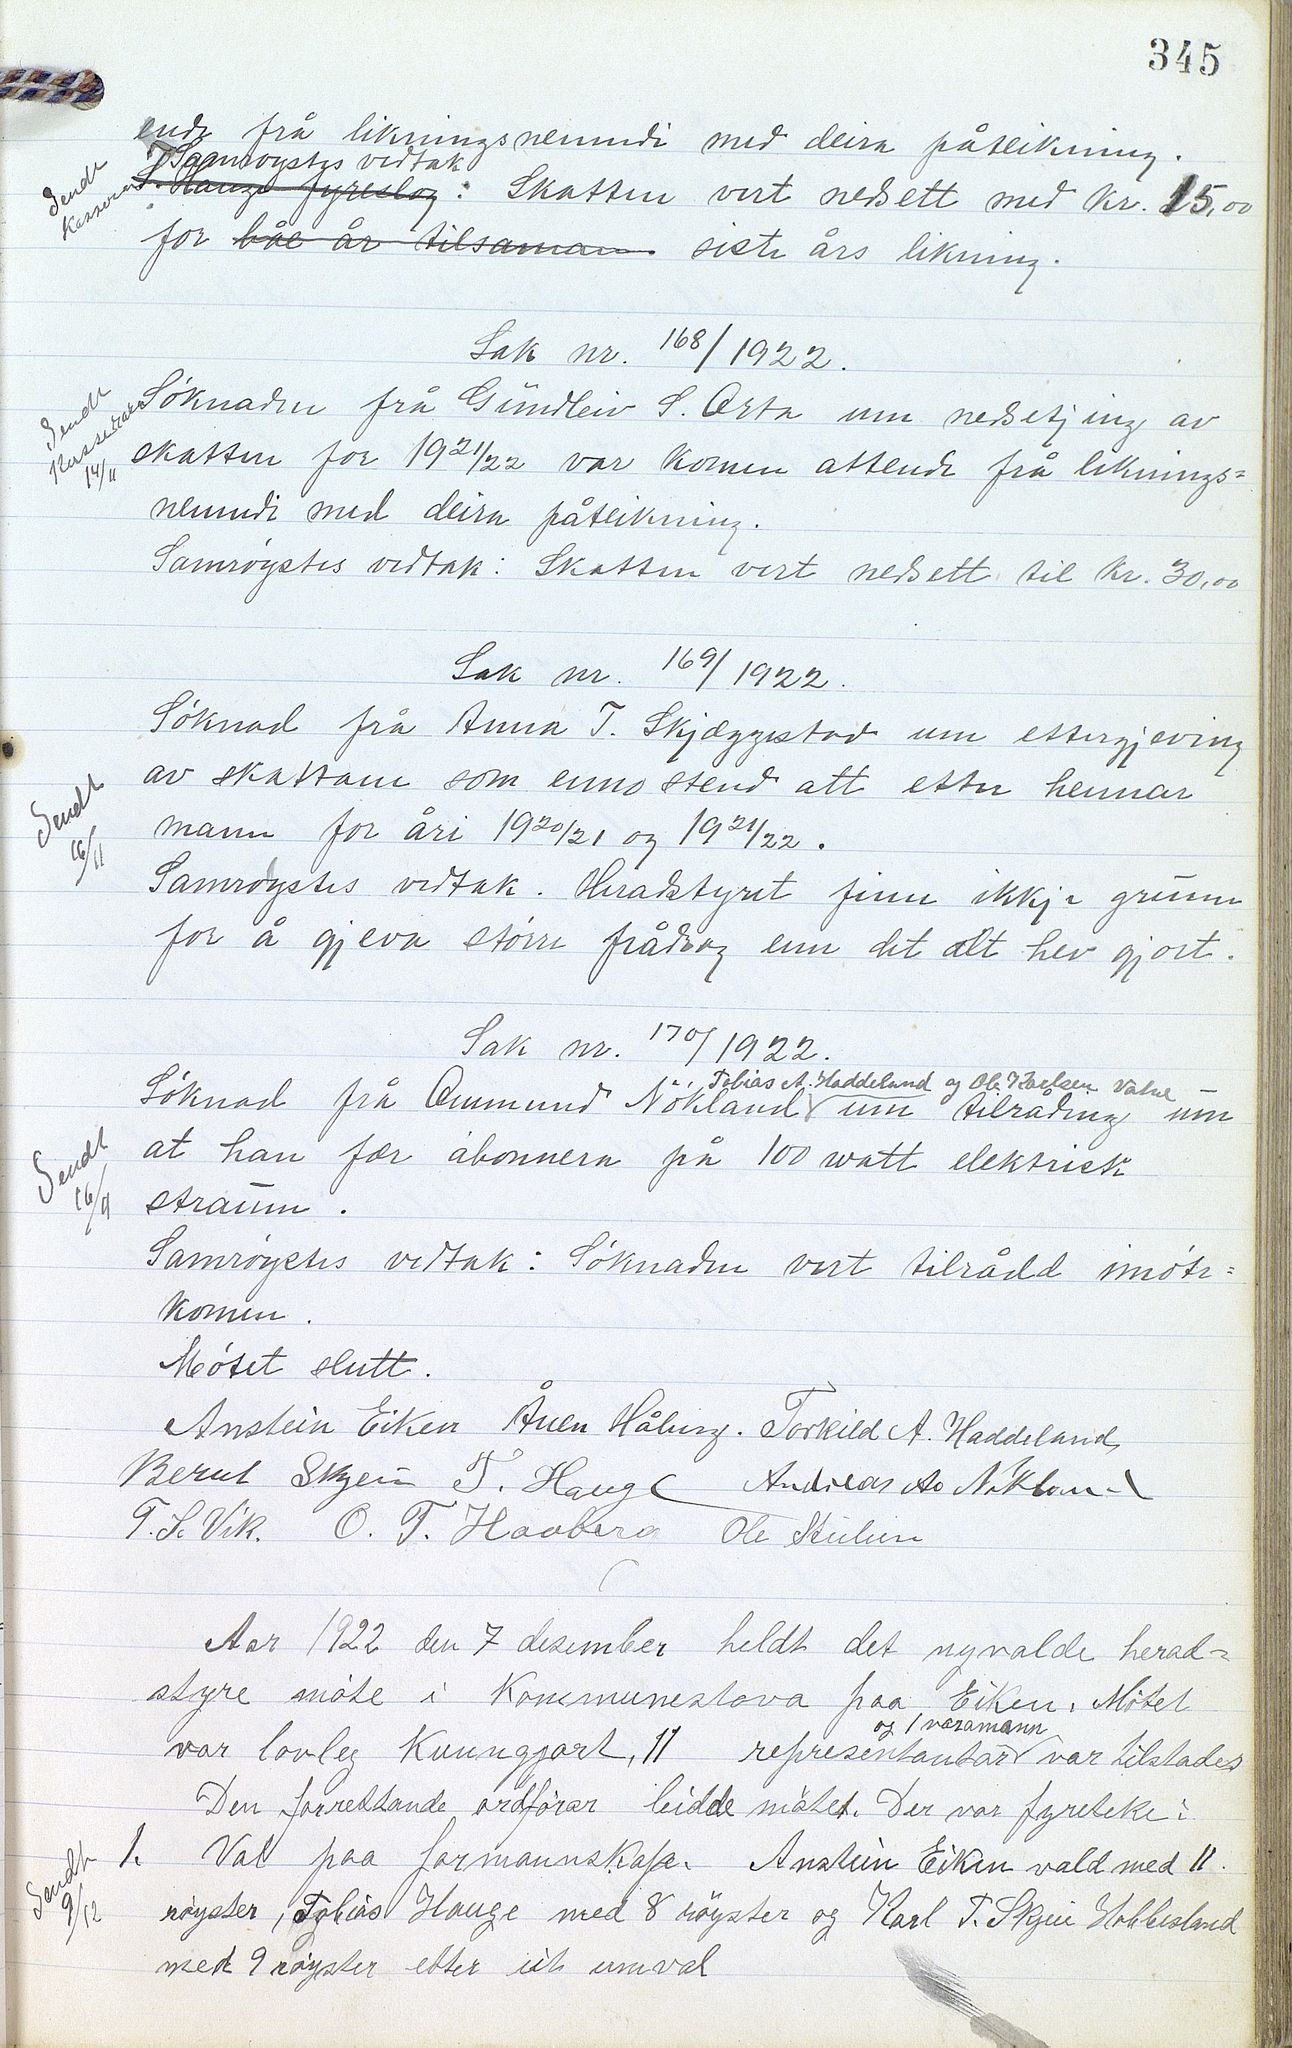 345
ende frå likningsnemndi med deira påteikning.
Samrøystes vedtak
T. Hauge fyreslog: Skatten vert nedsett med kr. 15,00
Sendt
Kasserar
for båe år tilsaman siste års likning.
Sak nr. 168/1922.
Søknaden frå Gŭndleiv S. Ørta um nedsetjing av
Sendt
Kasseraren
14/11
skatten for 1921/22 var komen attende frå liknings=
nemndi med deira påteikning.
Samrøystes vedtak: Skatten vert nedsett til kr. 30,00
Sak nr. 169/1922.
Søknad frå Anna T. Skjæggestad um ettergjeving
av skattane som enno stend att etter hennar
Sendt
16/11
mann for åri 1920/21 og 1921/22.
Samrøystes vedtak. Heradstyret finn ikkje grŭnn
for å gjeva større frådrag enn det alt hev gjort.
Sak nr. 170/1922.
Tobias A. Haddeland og Ole Karlsen
Søknad frå Ommund Nökland um tilråding um
at han fær abonnera på 100 watt elektrisk
Sendt
16/11
straŭm.
Samrøystes vedtak: Søknaden vert tilrådd imøte=
komen.
Møtet slutt.
Anstein Eiken Ånen Håberg. Torkild A. Haddeland
Bernt Skjein T. Hauge Andreas As Nökland
T. S. Vik. O. T. Haaberg Ole Stulien
Aar 1922 den 7 desember heldt det nyvalde herad=
styre møte i Kommunestova paa Eiken. Møtet
og 1 varamann
var lovleg kunngjort, 11 representantar var tilstades
Den forrettande ordförar leidde møtet. Der var fyreteke:
1. Val paa formannskap. Anstein Eiken vald med 11
Sendt
9/12
røyster, Tobias Hauge med 8 röyster og Karl T. Skjein Hobbesland
med 9 røyster etter eit umval